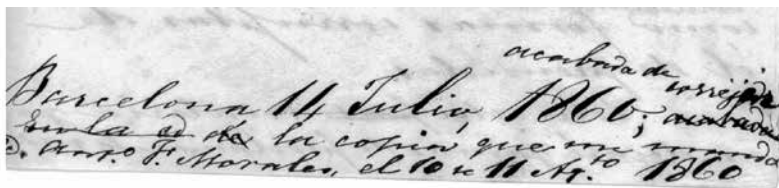 acabada de corregir
Barcelona 14 Julio, 1860; acabada
de la copia que me manda
D. Anto F. Morales, el 10 de 11 Agto 1860